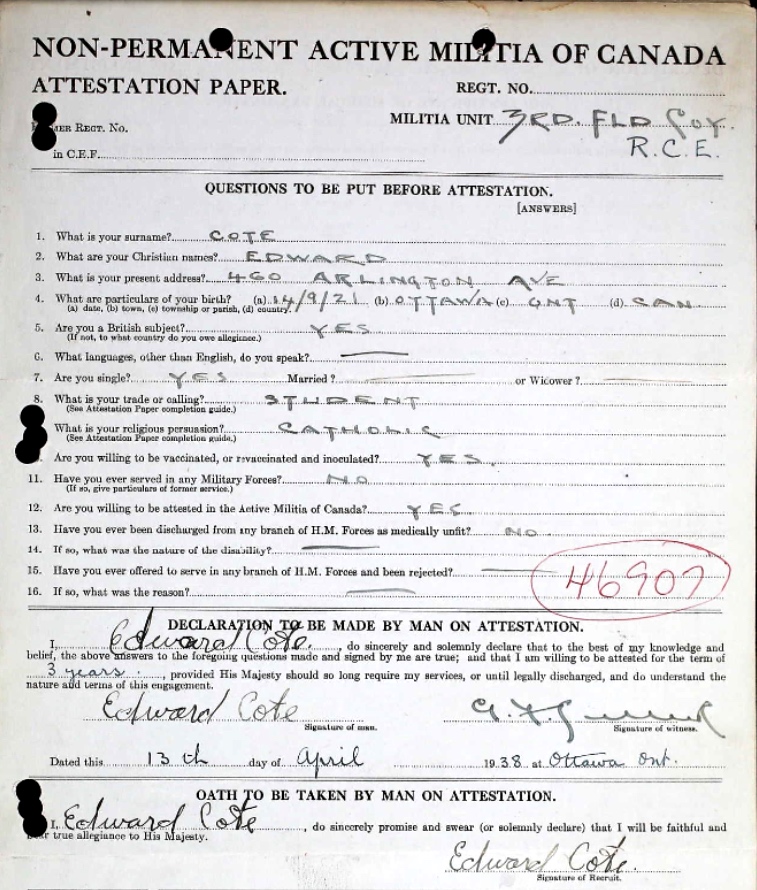 NON-PERMANENT ACTIVE MILITIA OF CANADA
ATTESTATION PAPER.
REGT. NO.
MILITIA UNIT 3RD. FLD COY.
R.C.E.
REGT. NO.
in C.E.F.
QUESTIONS TO BE PUT BEFORE ATTESTATION.
[ANSWERS]
1. What is your surname? COTE
2. What are your Christian names? EDWARD
3. What is your present address? 460 ARLINGTON AVE
4. What are particulars of your birth? (a) 14/9/21 (b) OTTAWA (c) ONT (d) CAN
(a) date, (b) town, (c) township or parish, (d) country.
5. Are you a British subject? YES
(If not, to what country do you owe allegiance.)
6. What languages, other than English, do you speak? —
7. Are you single? YES Married? — or Widower? —
8. What is your trade or calling? STUDENT
(See Attestation Paper completion guide.)
What is your religious persuasion? CATHOLIC
(See Attestation Paper completion guide.)
Are you willing to be vaccinated, or revaccinated and inoculated? YES.
11. Have you ever served in any Military Forces? NO
(If so, give particulars of former service.)
12. Are you willing to be attested in the Active Militia of Canada? YES
13. Have you ever been discharged from any branch of H.M. Forces as medically unfit? NO
14. If so, what was the nature of the disability? —
15. Have you ever offered to serve in any branch of H.M. Forces and been rejected? —
16. If so, what was the reason? —
46907
DECLARATION TO BE MADE BY MAN ON ATTESTATION.
I, Edward Cote, do sincerely and solemnly declare that to the best of my knowledge and
belief, the above answers to the foregoing questions made and signed by me are true; and that I am willing to be attested for the term of
3 years, provided His Majesty should so long require my services, or until legally discharged, and do understand the
nature and terms of this engagement.
Edward Cote
Signature of man. Signature of witness.
Dated this 13th day of April 1938 at Ottawa Ont.
OATH TO BE TAKEN BY MAN ON ATTESTATION.
I, Edward Cote, do sincerely promise and swear (or solemnly declare) that I will be faithful and
true allegiance to His Majesty.
Edward Cote.
Signature of Recruit.